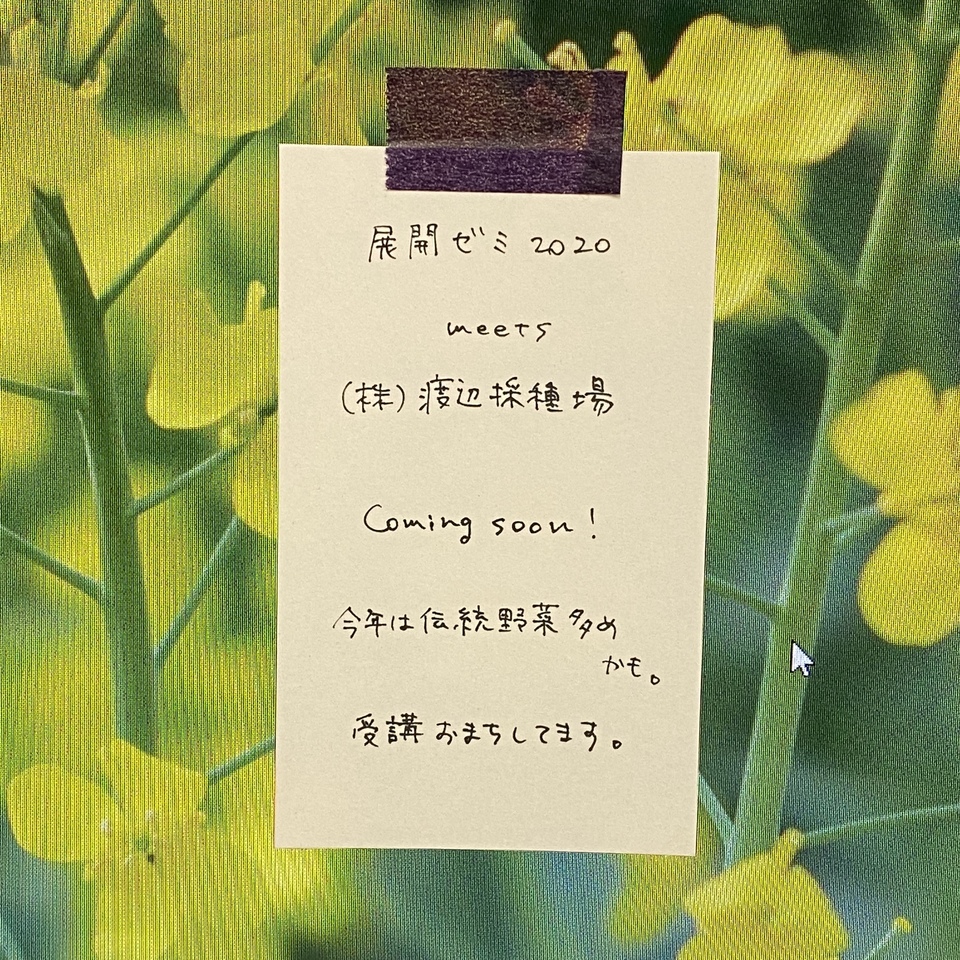 展開ゼミ 2020
meets
(株)渡辺採種場
Coming soon!
今年は伝統野菜多め
かも。
受講おまちしてます。